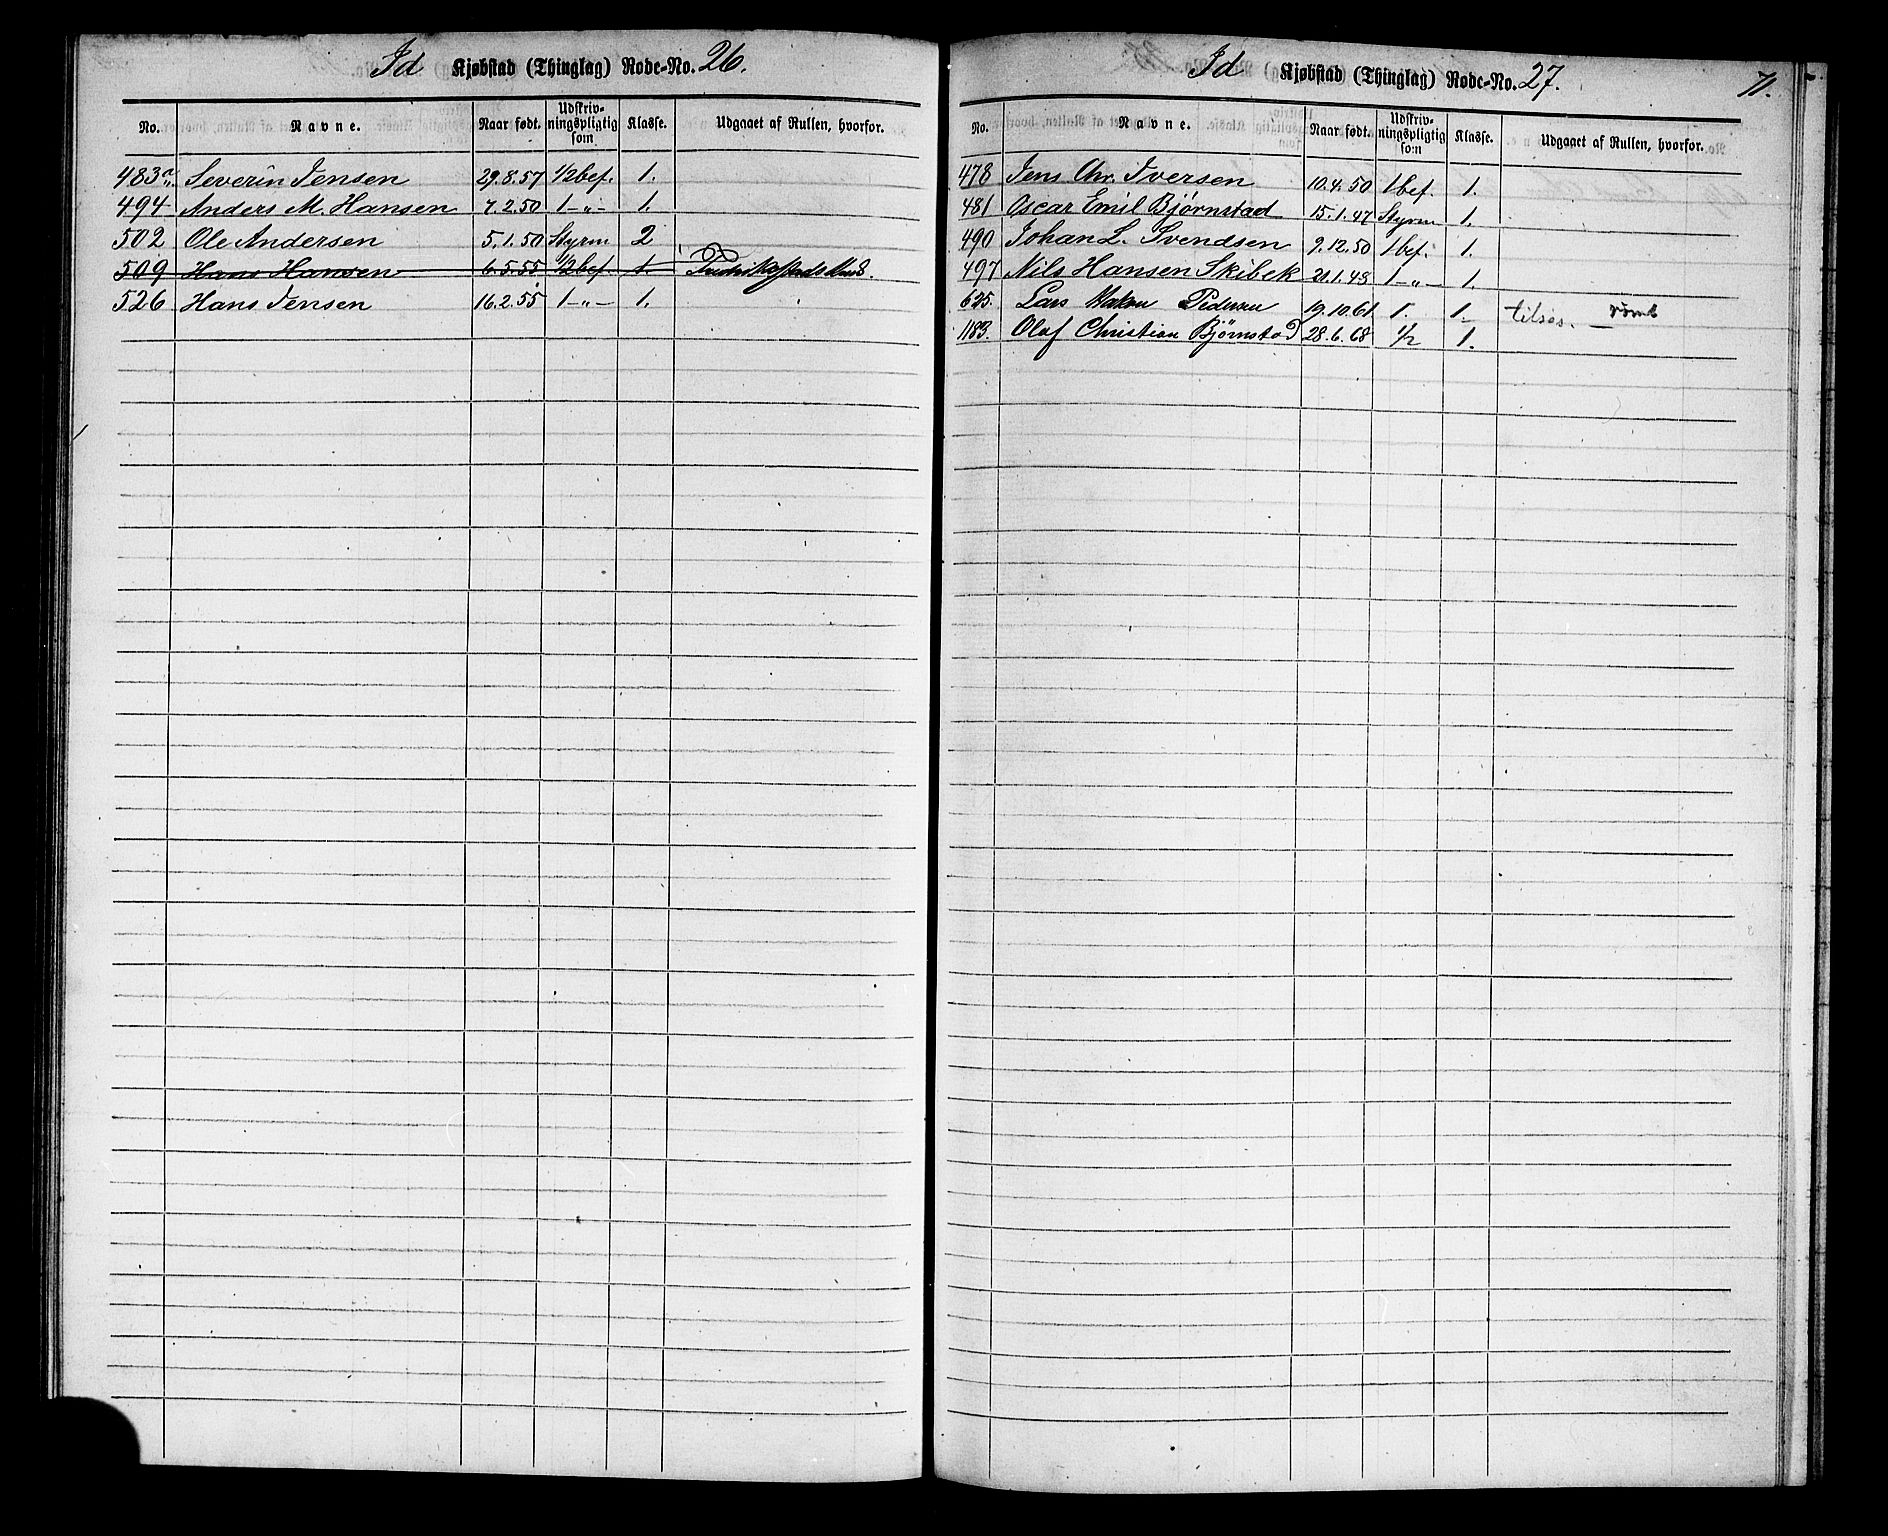 Id Kjøbstad (Thinglag) Rode-No. 26.
No. Navne. Naar født. Udskrivningspligtig som Klasse. Udgaaet af Rullen, hvorfor.
483a Severin Jensen 29.8.57 1/2 bef. 1.
494 Anders M. Hansen 7.2.50 1 -"- 1.
502 Ole Andersen 5.1.50 Styrm 2
509 Hans Hansen 6.5.55 1/2 bef. 1.
526 Hans Jensen 16.2.55 1 -"- 1.
Id Kjøbstad (Thinglag) Rode-No. 27. 71.
No. Navne. Naar født. Udskrivningspligtig som Klasse. Udgaaet af Rullen, hvorfor.
478 Jens Chr. Iversen 10.4.50 1 bef. 1.
481 Oscar Emil Bjørnstad 15.1.47 Styrm 1.
490 Johan L. Svendsen 9.12.50 1 bef. 1.
497 Nils Hansen Skibek 21.1.48 1 -"- 1.
625. Lars Pedersen 19.10.61 1. 1. tilsøs.
1183. Olaf Christian Bjørnstad 28.6.68 1/2 1.